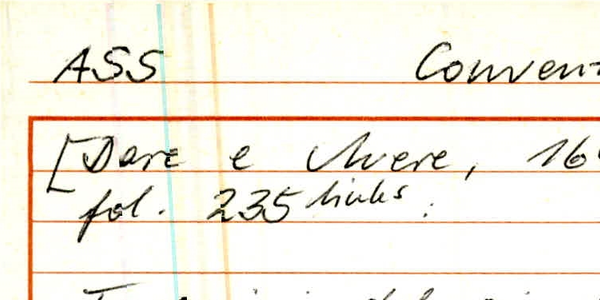 ASS Conven
[Dare e Avere, 16
fol. 235 links.